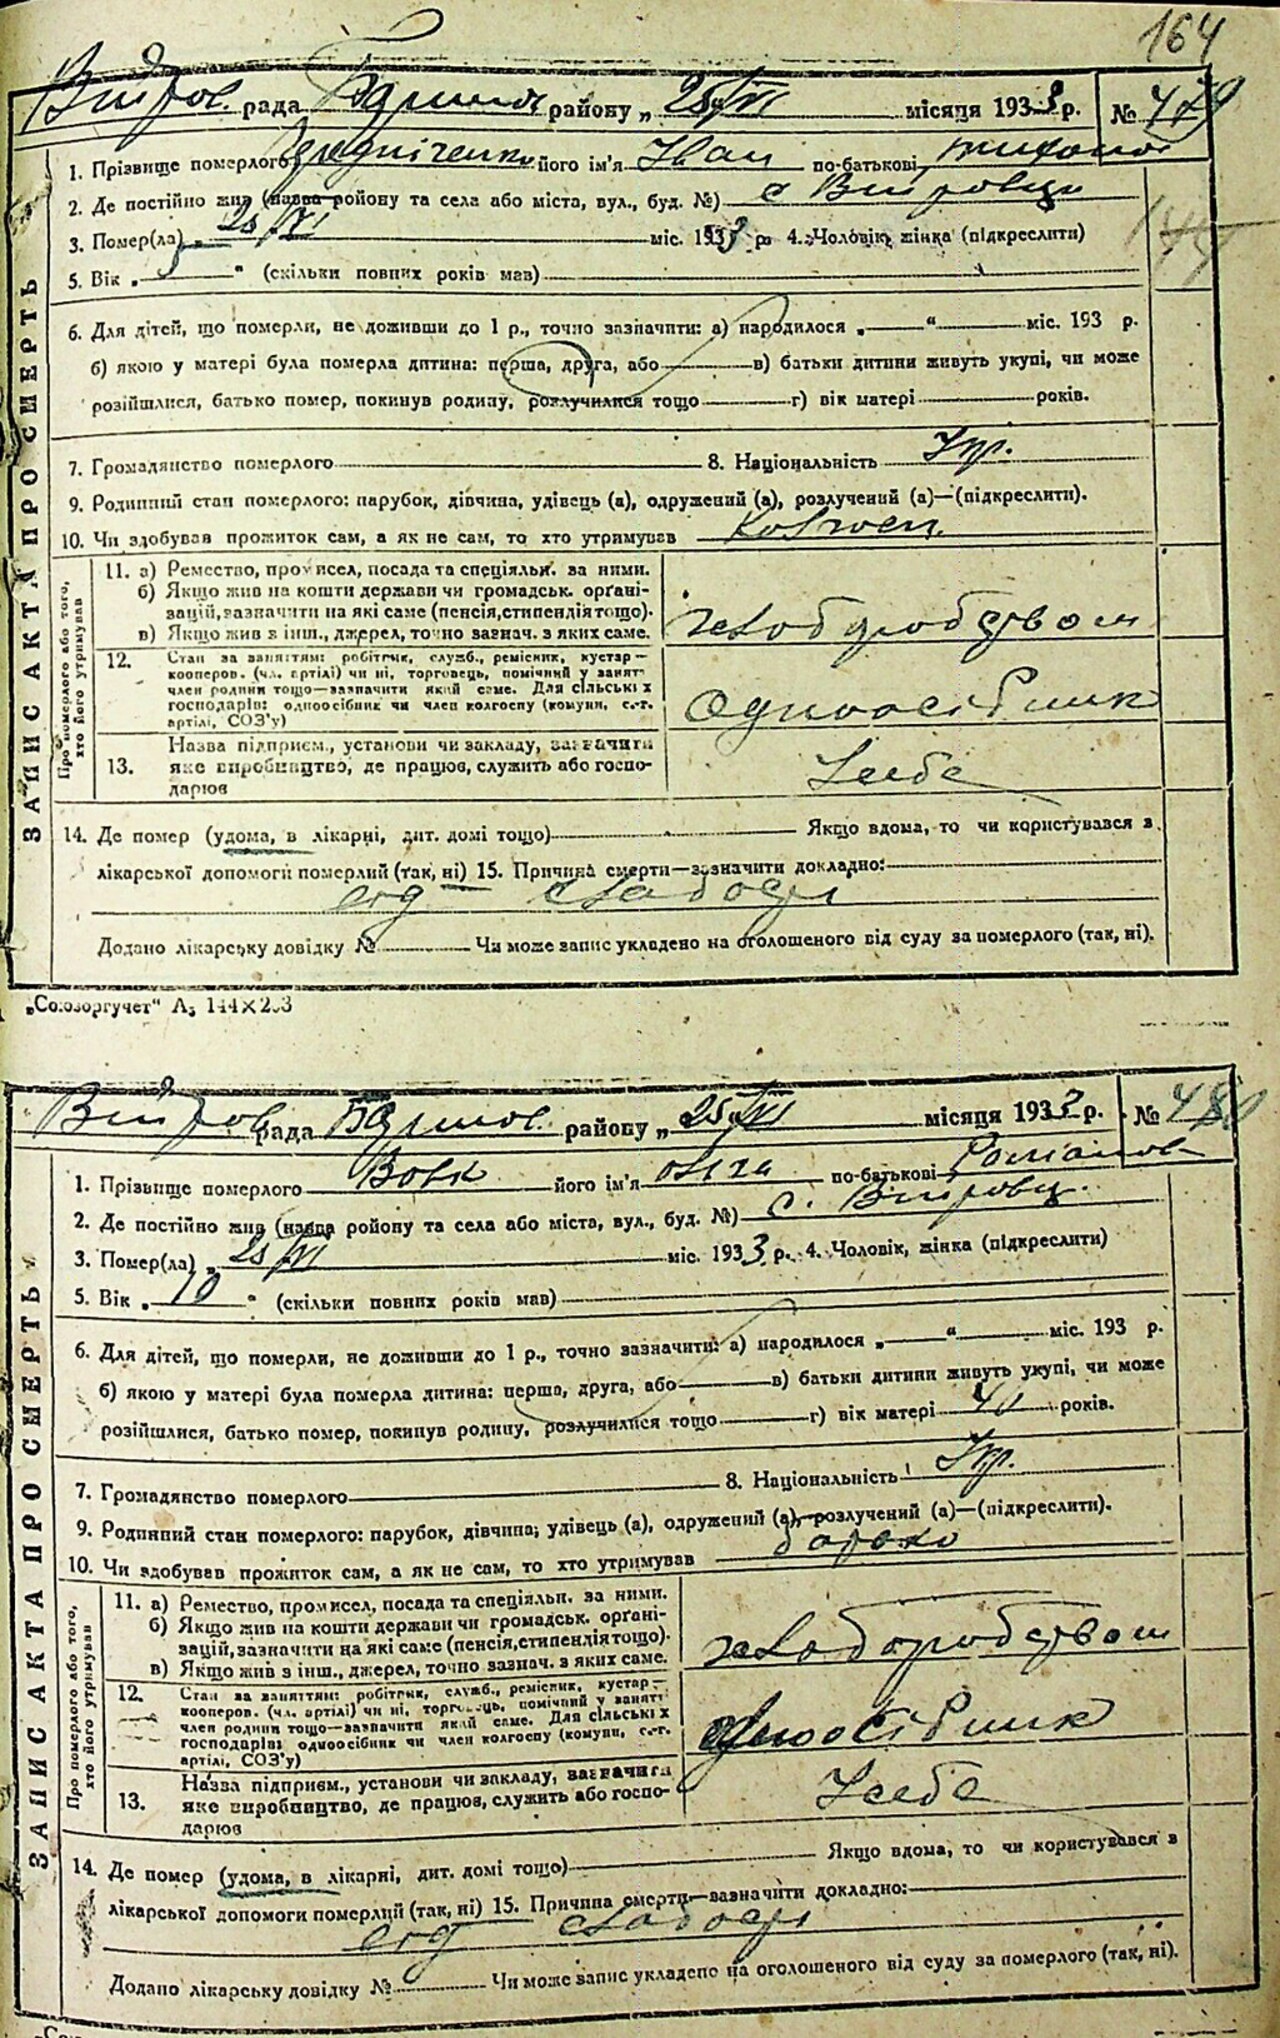 164
рада района „25/VI місяця 1933 р. № 479
1. Прізвище померлого його ім'я Іван по-батькові
2. Де постійно жив (назва району та села або міста, вул., буд. №) с
3. Помер(ла) „25/VI міс. 1933 р. 4. Чоловік, жінка (підкреслити)
5. Вік „ 5 “ (скільки повних років мав)
6. Для дітей, що померли, не доживши до 1 р., точно зазначити: а) народилося „ “ міс. 193 р.
б) якою у матері була померла дитина: перша, друга, або в) батьки дитини живуть укупі, чи може
розійшлися, батько помер, покинув родину, розлучилися тощо г) вік матері років.
7. Громадянство померлого 8. Національність Укр.
9. Родинний стан померлого: парубок, дівчина, удівець (а), одружений (а), розлучений (а)—(підкреслити).
10. Чи здобував прожиток сам, а як не сам, то хто утримував
ЗАПИС АКТА ПРО СМЕРТЬ
Про померлого або того, хто його утримував
11. а) Ремество, промисел, посада та спеціяльн. за ними.
б) Якщо жив на кошти держави чи громадськ. органі-
зацій, зазначити на які саме (пенсія, стипендія тощо).
в) Якщо жив з інш., джерел, точно зазнач. з яких саме.
хлоборобством
12. Стан за заняттям: робітник, служб., ремісник, кустар—
кооперов. (чл. артілі) чи ні, торговець, помічний у занятт
член родини тощо—зазначити який саме. Для сільських
господарів: одноосібник чи член колгоспу (комуни, с.-г.
артілі, СОЗ'у)
Одноосібник
13. Назва підприєм., установи чи закладу, зазначити
яке виробництво, де працює, служить або госпо-
дарює
У себе
14. Де помер (удома, в лікарні, дит. домі тощо) Якщо вдома, то чи користувався з
лікарської допомоги померлий (так, ні) 15. Причина смерти—зазначити докладно:
від слабости
Додано лікарську довідку № Чи може запис укладено на оголошеного від суду за померлого (так, ні).
„Союзоргучет“ А₅ 144×203
рада району „25/VI місяця 1933 р. № 480
1. Прізвище померлого Вовк його ім'я Ольга по-батькові Романов
2. Де постійно жив (назва району та села або міста, вул., буд. №) с.
3. Помер(ла) „25/VI міс. 1933 р. 4. Чоловік, жінка (підкреслити)
5. Вік „ 10 “ (скільки повних років мав)
6. Для дітей, що померли, не доживши до 1 р., точно зазначити: а) народилося „ “ міс. 193 р.
б) якою у матері була померла дитина: перша, друга, або в) батьки дитини живуть укупі, чи може
розійшлися, батько помер, покинув родину, розлучилися тощо г) вік матері 40 років.
7. Громадянство померлого 8. Національність Укр.
9. Родинний стан померлого: парубок, дівчина, удівець (а), одружений (а), розлучений (а)—(підкреслити).
10. Чи здобував прожиток сам, а як не сам, то хто утримував батько
ЗАПИС АКТА ПРО СМЕРТЬ
Про померлого або того, хто його утримував
11. а) Ремество, промисел, посада та спеціяльн. за ними.
б) Якщо жив на кошти держави чи громадськ. органі-
зацій, зазначити на які саме (пенсія, стипендія тощо).
в) Якщо жив з інш., джерел, точно зазнач. з яких саме.
хлоборобством
12. Стан за заняттям: робітник, служб., ремісник, кустар—
кооперов. (чл. артілі) чи ні, торговець, помічний у занятт
член родини тощо—зазначити який саме. Для сільських
господарів: одноосібник чи член колгоспу (комуни, с.-г.
артілі, СОЗ'у)
Одноосібник
13. Назва підприєм., установи чи закладу, зазначити
яке виробництво, де працює, служить або госпо-
дарює
У себе
14. Де помер (удома, в лікарні, дит. домі тощо) Якщо вдома, то чи користувався з
лікарської допомоги померлий (так, ні) 15. Причина смерти—зазначити докладно:
від слабости
Додано лікарську довідку № Чи може запис укладено на оголошеного від суду за померлого (так, ні).